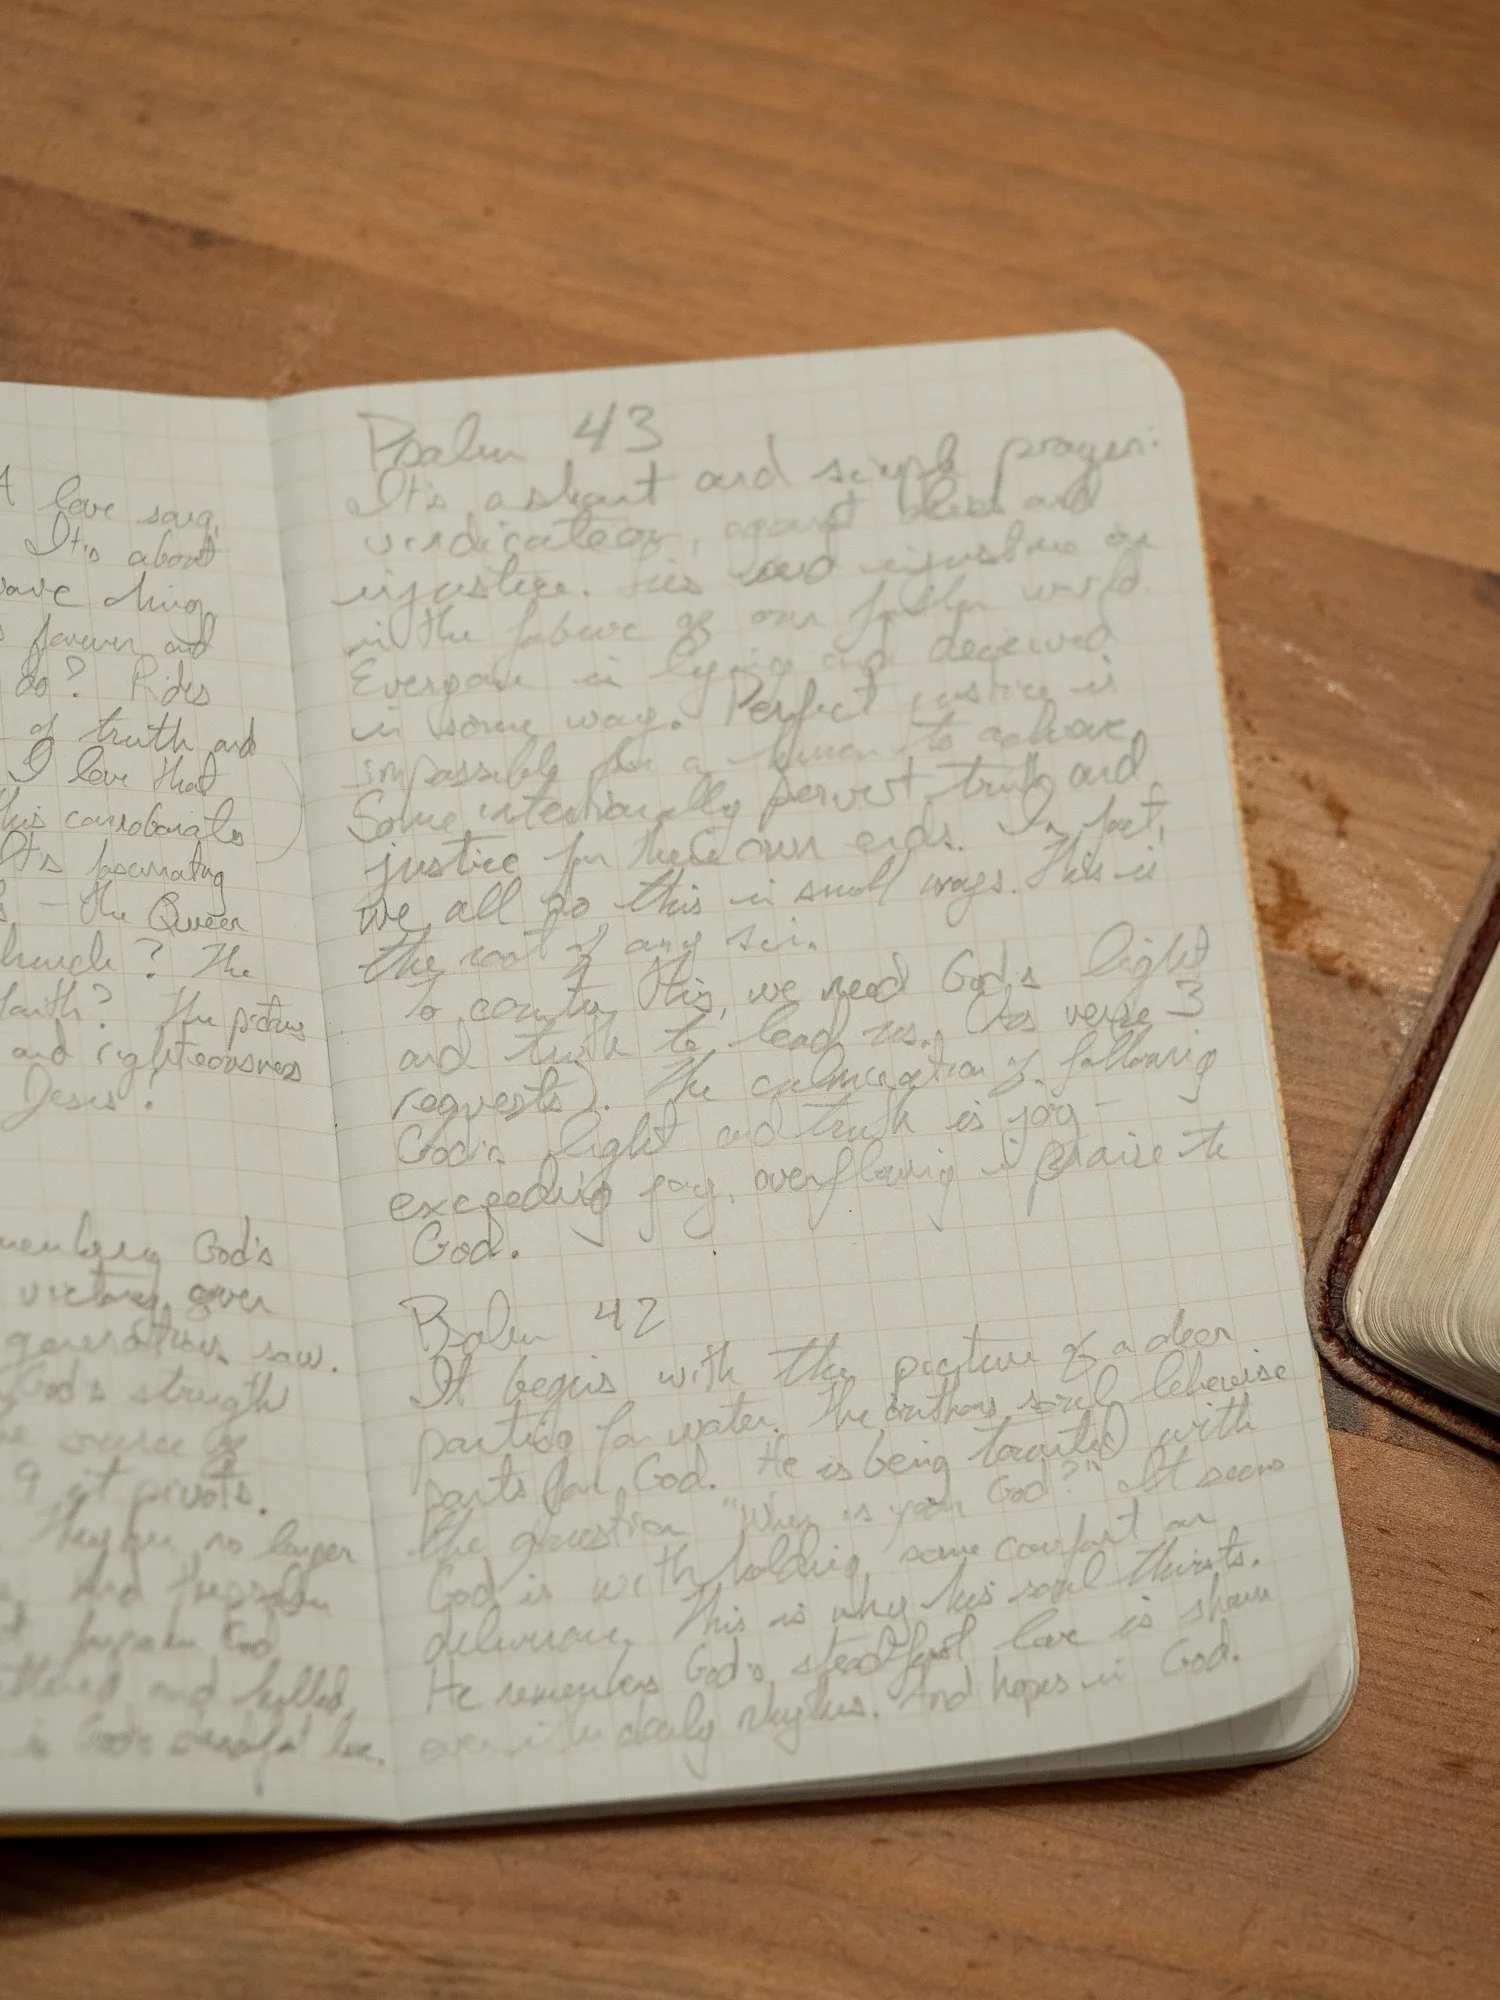 A love song,
It's about
ing
forever and
do? Rides
of truth and
I love that
this corroborates
It's fascinating
– the Queen
church? The
faith? The picture
and righteousness
Jesus?
God's
victory given
generations saw.
God's strength
the source of
9 it pivots.
They are no longer
And
God
and killed,
is God's steadfast love.
Psalm 43
It's a short and simple prayer:
vindication, against lies and
injustice. Lies and injustice are
in the fabric of our fallen world.
Everyone is lying and deceived
in some way. Perfect justice is
impossible for a human to achieve.
Some intentionally pervert truth and
justice for their own ends. In fact,
we all do this in small ways. This is
the root of any sin.
To counter this, we need God's light
and truth to lead us. (As verse 3
requests). The culmination of following
God's light and truth is joy –
exceeding joy, overflowing in praise to
God.
Psalm 42
It begins with the picture of a deer
panting for water. The authors soul likewise
pants for God. He is being taunted with
the question "Where is your God?" It seems
God is withholding some comfort or
deliverance. This is why his soul thirsts.
He remembers God's steadfast love is shown
even in the daily rhythms. And hopes in God.